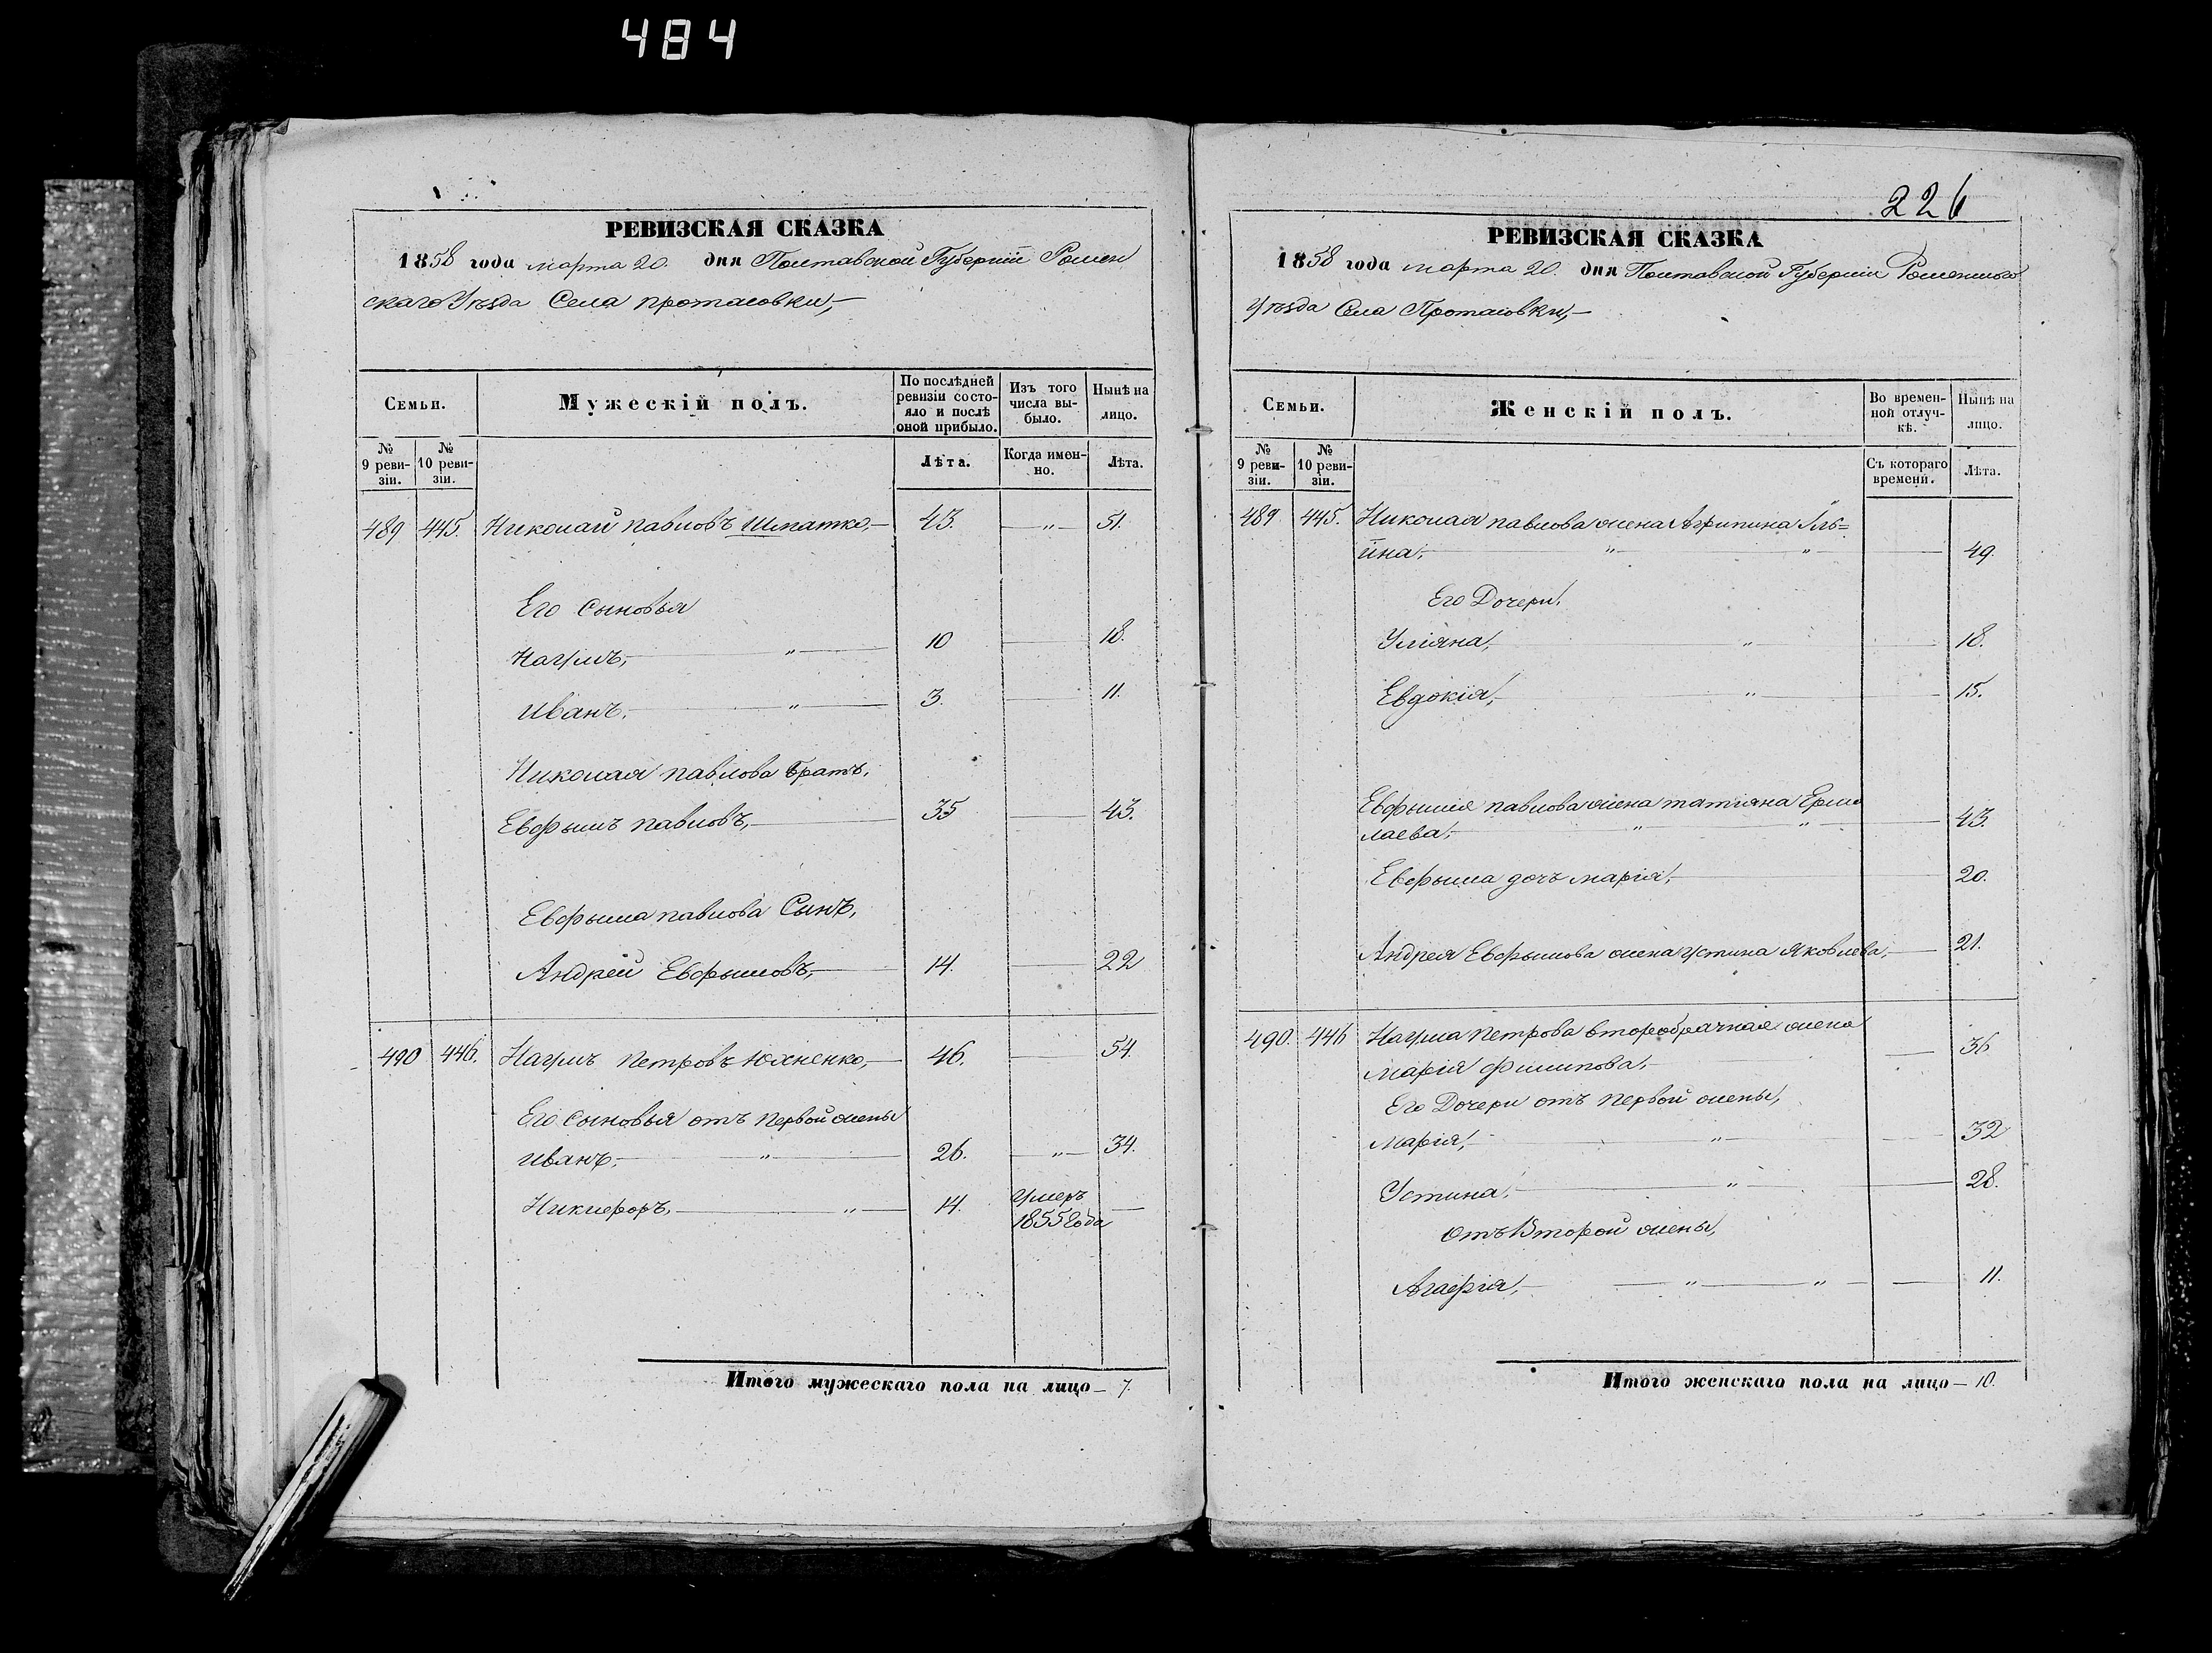 484
РЕВИЗСКАЯ СКАЗКА
1858 года марта 20. дня Полтавской Губерніи Ромен
скаго Уѣзда Села протасовки,
Семьи. Мужескій полъ. По послѣдней ревизіи состояло и послѣ оной прибыло. Изъ того числа выбыло. Нынѣ на лицо.
№ 9 ревизіи. № 10 ревизіи. Лѣта. Когда именно. Лѣта.
489 445. Николай павловъ Шпатко, 43. „ 51.
Его сыновья
Наумъ, „ 10 18.
Иванъ. „ 3. 11.
Николая павлова братъ.
Евфымъ павловъ, 35 43.
Евфыма павлова Сынъ,
Андрей Евфымовъ, 14. 22
490 446. Наумъ Петровъ Юхненко, 46. 54.
Его сыновья отъ Первой жены
Иванъ. „ 26. „ 34.
Никифоръ, „ 14. умеръ
1855 года
Итого мужескаго пола на лицо 7.
226
РЕВИЗСКАЯ СКАЗКА
1858 года марта 20. дня Полтавской Губерніи Роменскаго
Уѣзда Села Протасовки,
Семьи. Женскій полъ. Во временной отлучкѣ. Нынѣ на лицо.
№ 9 ревизіи. № 10 ревизіи. Съ котораго времени. Лѣта.
489 445. Николая павлова жена Агрипина Іль=
ина, „ „ 49.
Его Дочери,
Уліяна, „ 18.
Евдокія, „ 15.
Евфымія павлова жена татіяна Ермо
лаева, „ „ 43.
Евфыма дочь марія, 20.
Андрея Евфымова жена Устина Яковлева, 21.
490. 446 Наума Петрова второбрачная жена
Марія филипова, 36
Его Дочери отъ Первой жены,
Марія, „ 32
Устина, „ 28.
Отъ Второй жены,
Агафія, „ „ 11.
Итого женскаго пола на лицо 10.